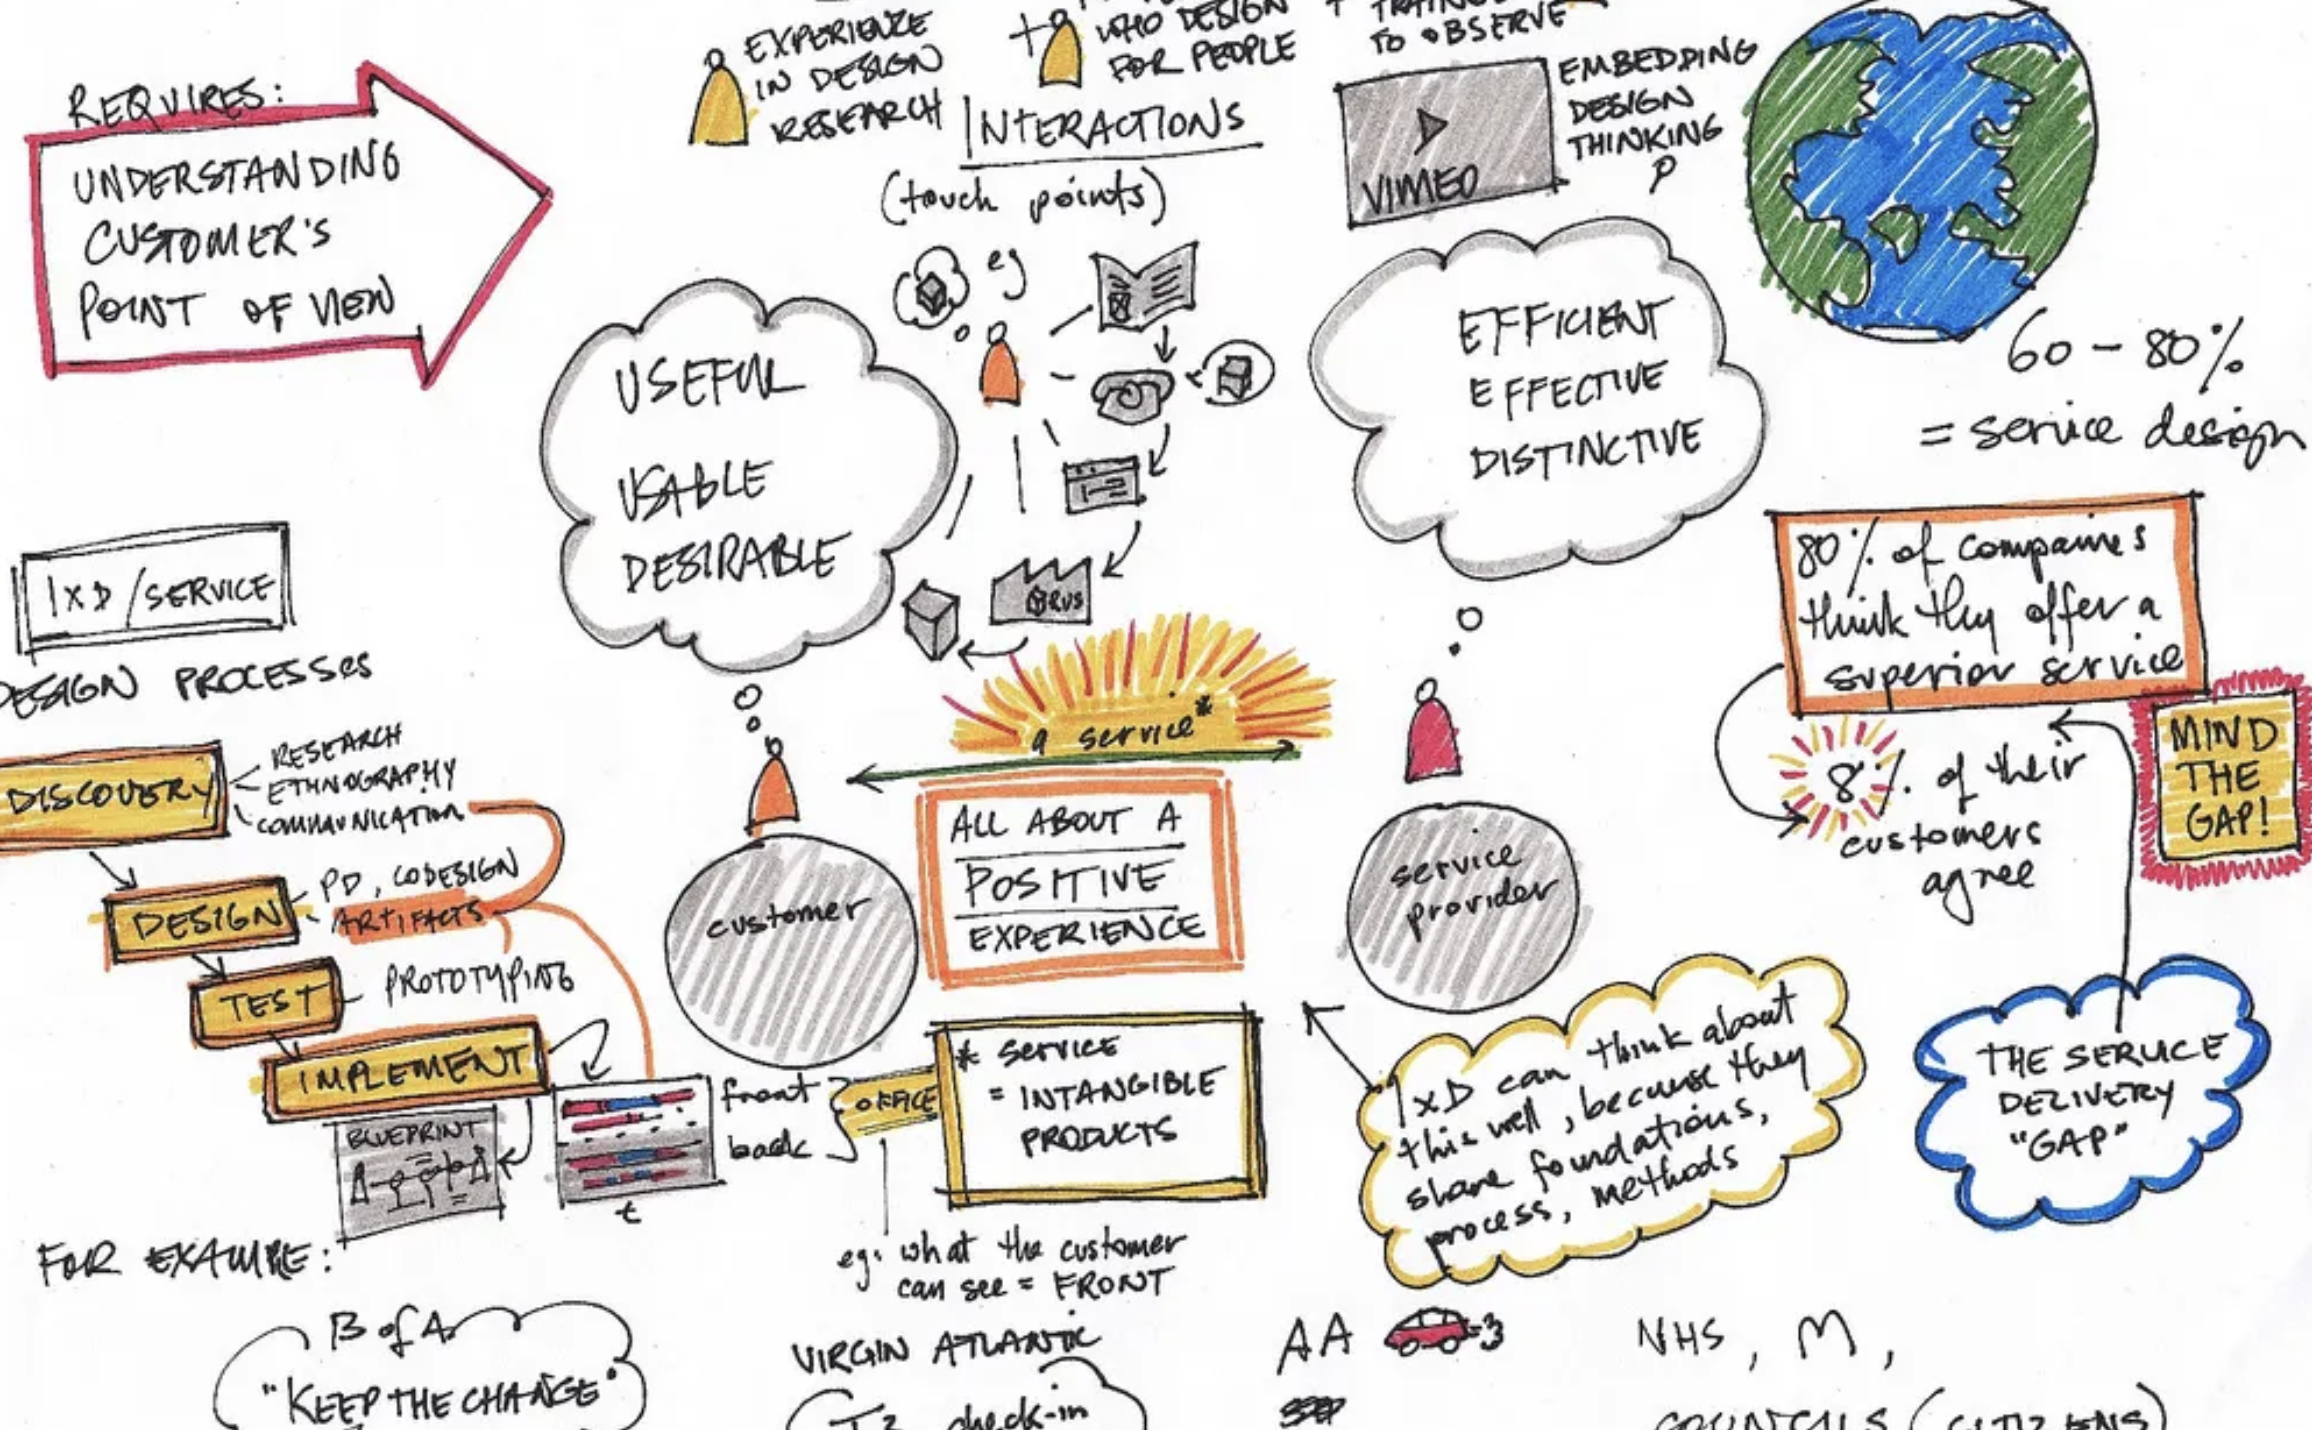 REQUIRES:
UNDERSTANDING
CUSTOMER'S
POINT OF VIEW
EXPERIENCE
IN DESIGN
RESEARCH
+
WHO DESIGN
FOR PEOPLE
+
TO OBSERVE
INTERACTIONS
(touch points)
eg
VIMEO
EMBEDDING
DESIGN
THINKING
USEFUL
USABLE
DESIRABLE
RUS
EFFICIENT
EFFECTIVE
DISTINCTIVE
60 - 80%
= service design
80% of companies
think they offer a
superior service
8% of their
customers
agree
MIND
THE
GAP!
THE SERVICE
DELIVERY
"GAP"
IXD / SERVICE
DESIGN PROCESSES
DISCOVERY
RESEARCH
ETHNOGRAPHY
COMMUNICATION
DESIGN
PD, CODESIGN
ARTIFACTS
TEST
PROTOTYPING
IMPLEMENT
BLUEPRINT
t
front
back
OFFICE
a service*
customer
ALL ABOUT A
POSITIVE
EXPERIENCE
service
provider
* SERVICE
= INTANGIBLE
PRODUCTS
eg. what the customer
can see = FRONT
IXD can think about
this well, because they
share foundations,
process, methods
FOR EXAMPLE:
B of A
"KEEP THE CHANGE"
VIRGIN ATLANTIC
check-in
AA
NHS, M,
COUNCILS (CITIZENS)